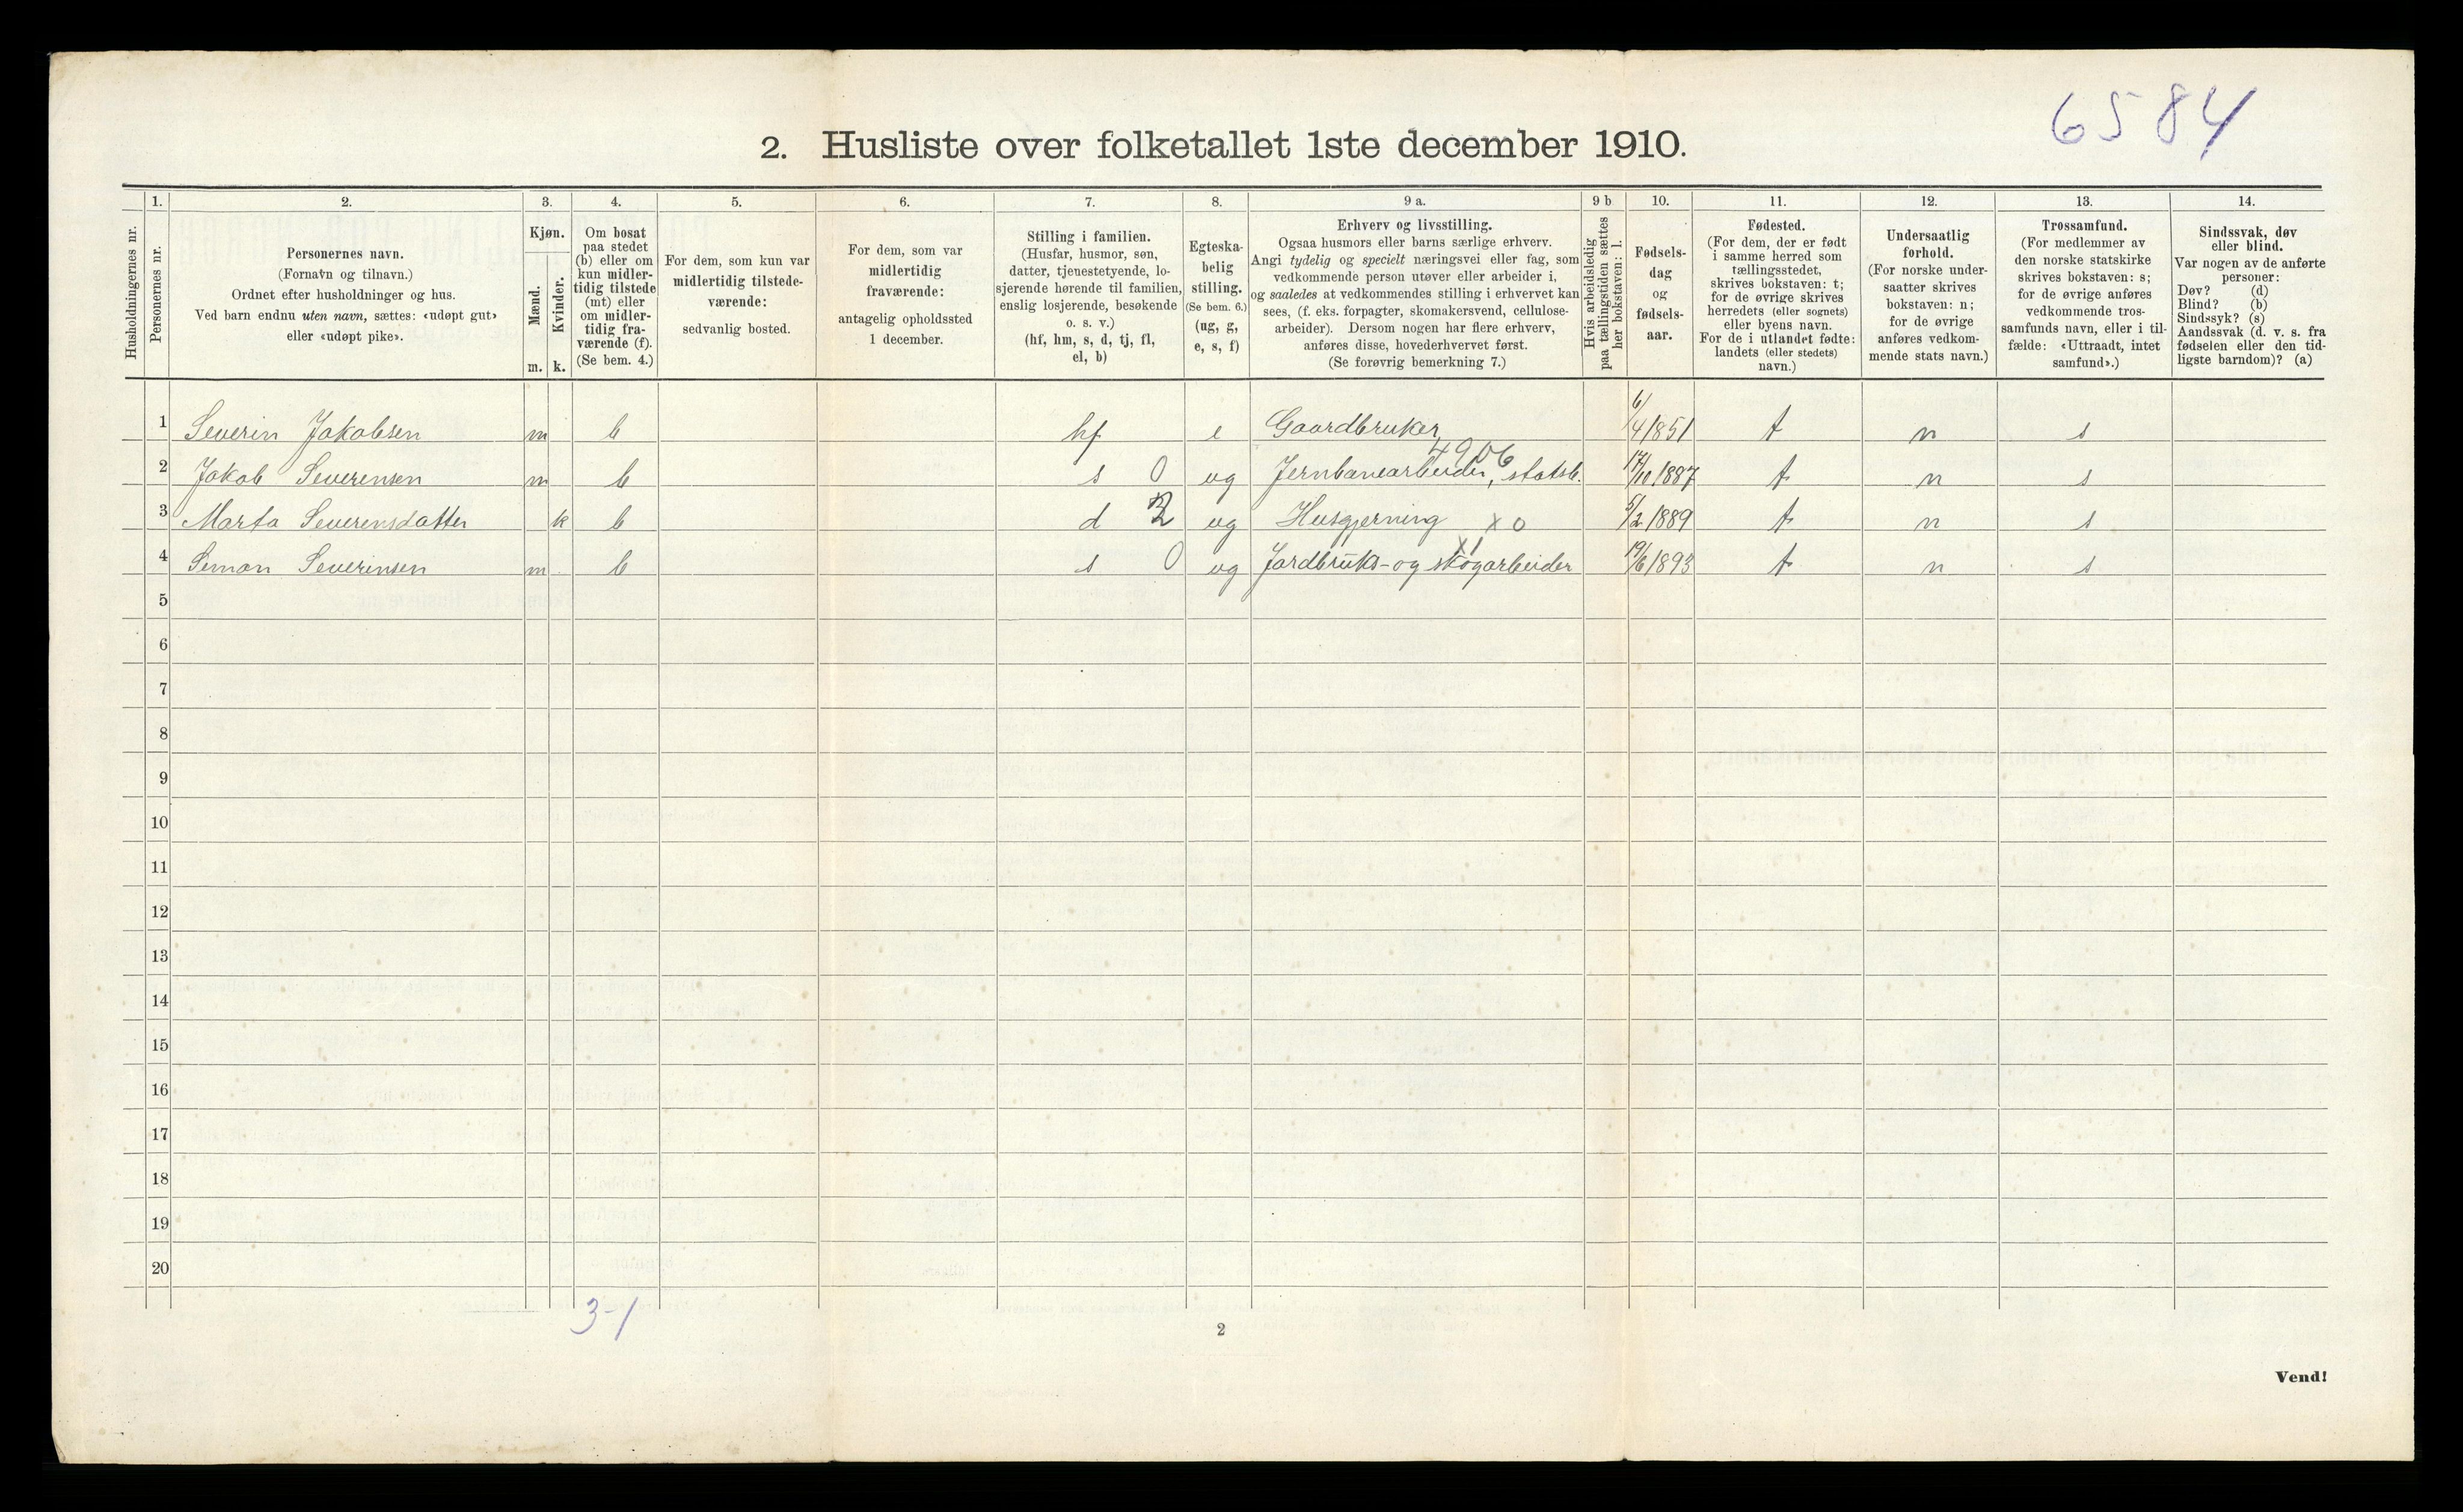 6584
2. Husliste over folketallet 1ste december 1910.
Husholdningernes nr.
1.
Personernes nr.
2.
Personernes navn.
(Fornavn og tilnavn.)
Ordnet efter husholdninger og hus.
Ved barn endnu uten navn, sættes: «udøpt gut»
eller «udøpt pike».
3.
Kjøn.
Mænd.
Kvinder.
m. k.
4.
Om bosat
paa stedet
(b) eller om
kun midler-
tidig tilstede
(mt) eller
om midler-
tidig fra-
værende (f).
(Se bem. 4.)
5.
For dem, som kun var
midlertidig tilstede-
værende:
sedvanlig bosted.
6.
For dem, som var
midlertidig
fraværende:
antagelig opholdssted
1 december.
7.
Stilling i familien.
(Husfar, husmor, søn,
datter, tjenestetyende, lo-
sjerende hørende til familien,
enslig losjerende, besøkende
o. s. v.)
(hf, hm, s, d, tj, fl,
el, b)
8.
Egteska-
belig
stilling.
(Se bem. 6.)
(ug, g,
e, s, f)
9 a.
Erhverv og livsstilling.
Ogsaa husmors eller barns særlige erhverv.
Angi tydelig og specielt næringsvei eller fag, som
vedkommende person utøver eller arbeider i,
og saaledes at vedkommendes stilling i erhvervet kan
sees, (f. eks. forpagter, skomakersvend, cellulose-
arbeider). Dersom nogen har flere erhverv,
anføres disse, hovederhvervet først.
(Se forøvrig bemerkning 7.)
9 b
Hvis arbeidsledig
paa tællingstiden sættes
her bokstaven: l.
10.
Fødsels-
dag
og
fødsels-
aar.
11.
Fødested.
(For dem, der er født
i samme herred som
tællingsstedet,
skrives bokstaven: t;
for de øvrige skrives
herredets (eller sognets)
eller byens navn.
For de i utlandet fødte:
landets (eller stedets)
navn.)
12.
Undersaatlig
forhold.
(For norske under-
saatter skrives
bokstaven: n;
for de øvrige
anføres vedkom-
mende stats navn.)
13.
Trossamfund.
(For medlemmer av
den norske statskirke
skrives bokstaven: s;
for de øvrige anføres
vedkommende tros-
samfunds navn, eller i til-
fælde: «Uttraadt, intet
samfund».)
14.
Sindssvak, døv
eller blind.
Var nogen av de anførte
personer:
Døv? (d)
Blind? (b)
Sindssyk? (s)
Aandssvak (d. v. s. fra
fødselen eller den tid-
ligste barndom)? (a)
1 Severin Jakobsen m b hf e Gaardbruker 6/4 1851 t n s
4906
2 Jakob Severensen m b s 0 ug Jernbanearbeider, statsb. 17/10 1887 t n s
3 Marta Severensdatter k b d ug Husgjerning x 0 5/2 1889 t n s
x1
4 Simon Severinsen m b s 0 ug Jordbruks- og skogarbeider 19/6 1893 t n s
5
6
7
8
9
10
11
12
13
14
15
16
17
18
19
20
3-1
2
Vend!